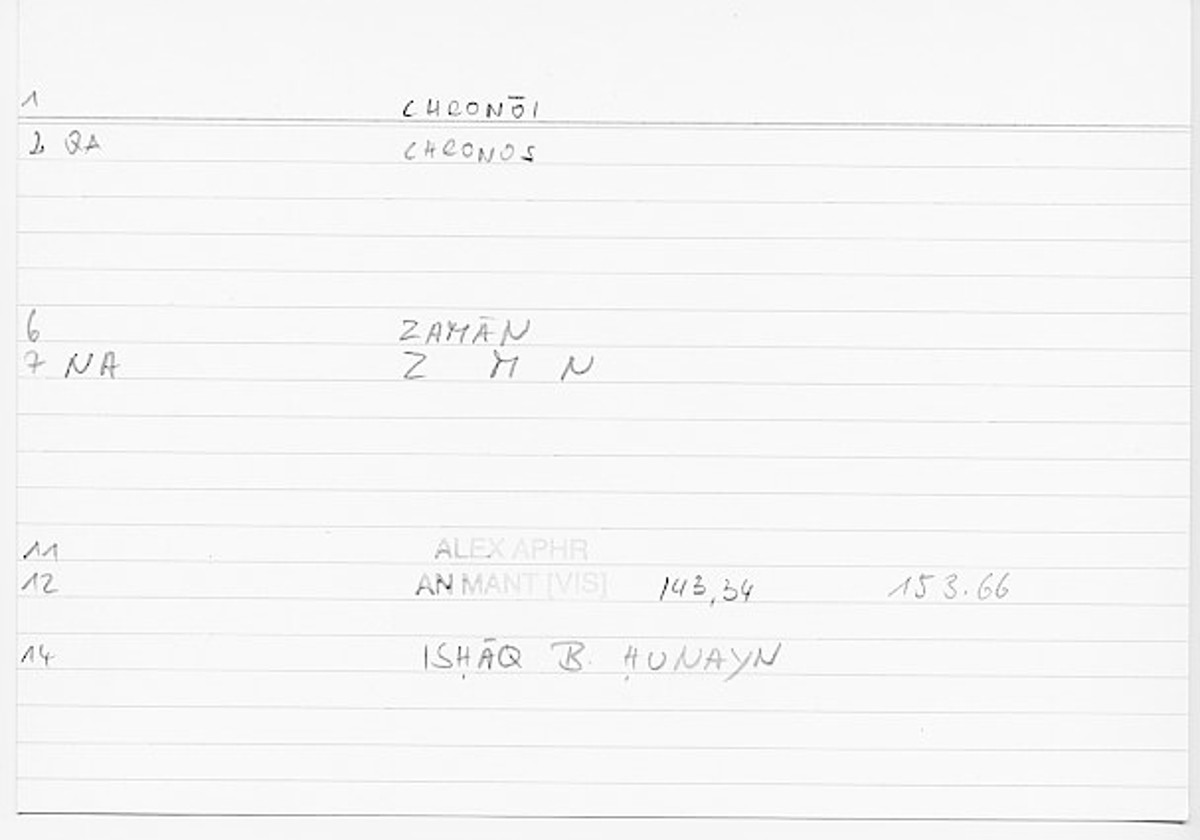 1 CHRONŌI
2 QA CHRONOS
6 ZAMĀN
7 NA Z M N
11 ALEX APHR
12 AN MANT [VIS] 143,34 153.66
14 ISḤĀQ B. ḤUNAYN